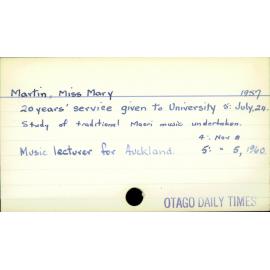 Martin, Miss Mary 1957
20 years' service given to University 5: July, 24.
Study of traditional Maori music undertaken.
4: Nov 8
Music lecturer for Auckland. 5: " 5, 1960.
OTAGO DAILY TIMES